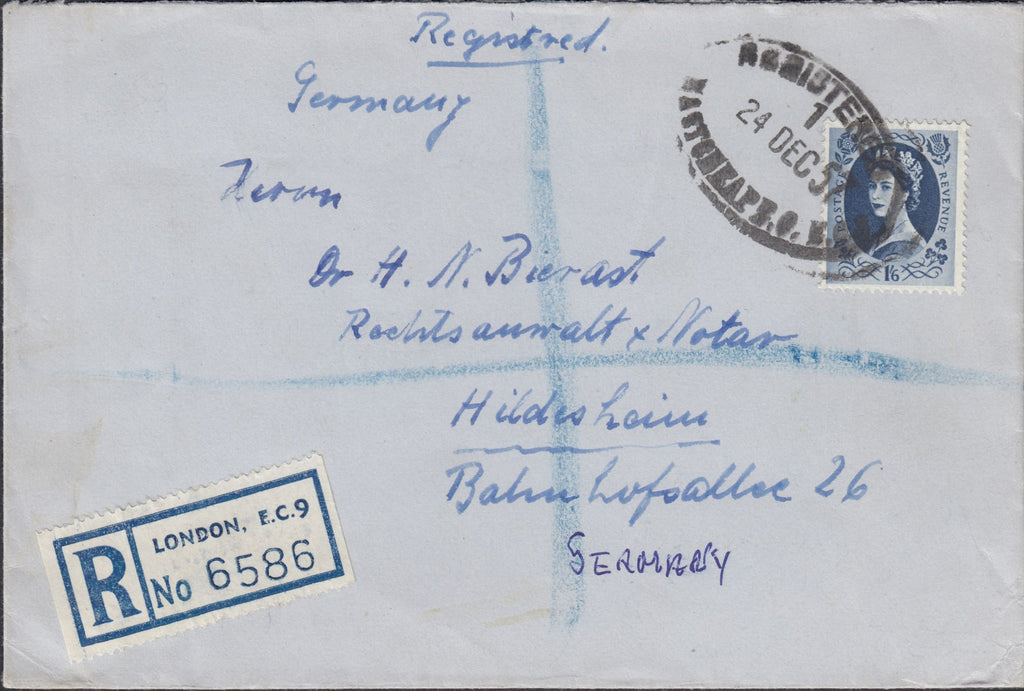 Registred.
Germany
Herrn
Dr H. N. Bierast
Rechtsanwalt & Notar
Hildesheim
Bahnhofsallee 26
GERMANY
REGISTERED
1
24 DEC 5
B.O.
POSTAGE
REVENUE
1/6
R
LONDON, E.C.9
No 6586